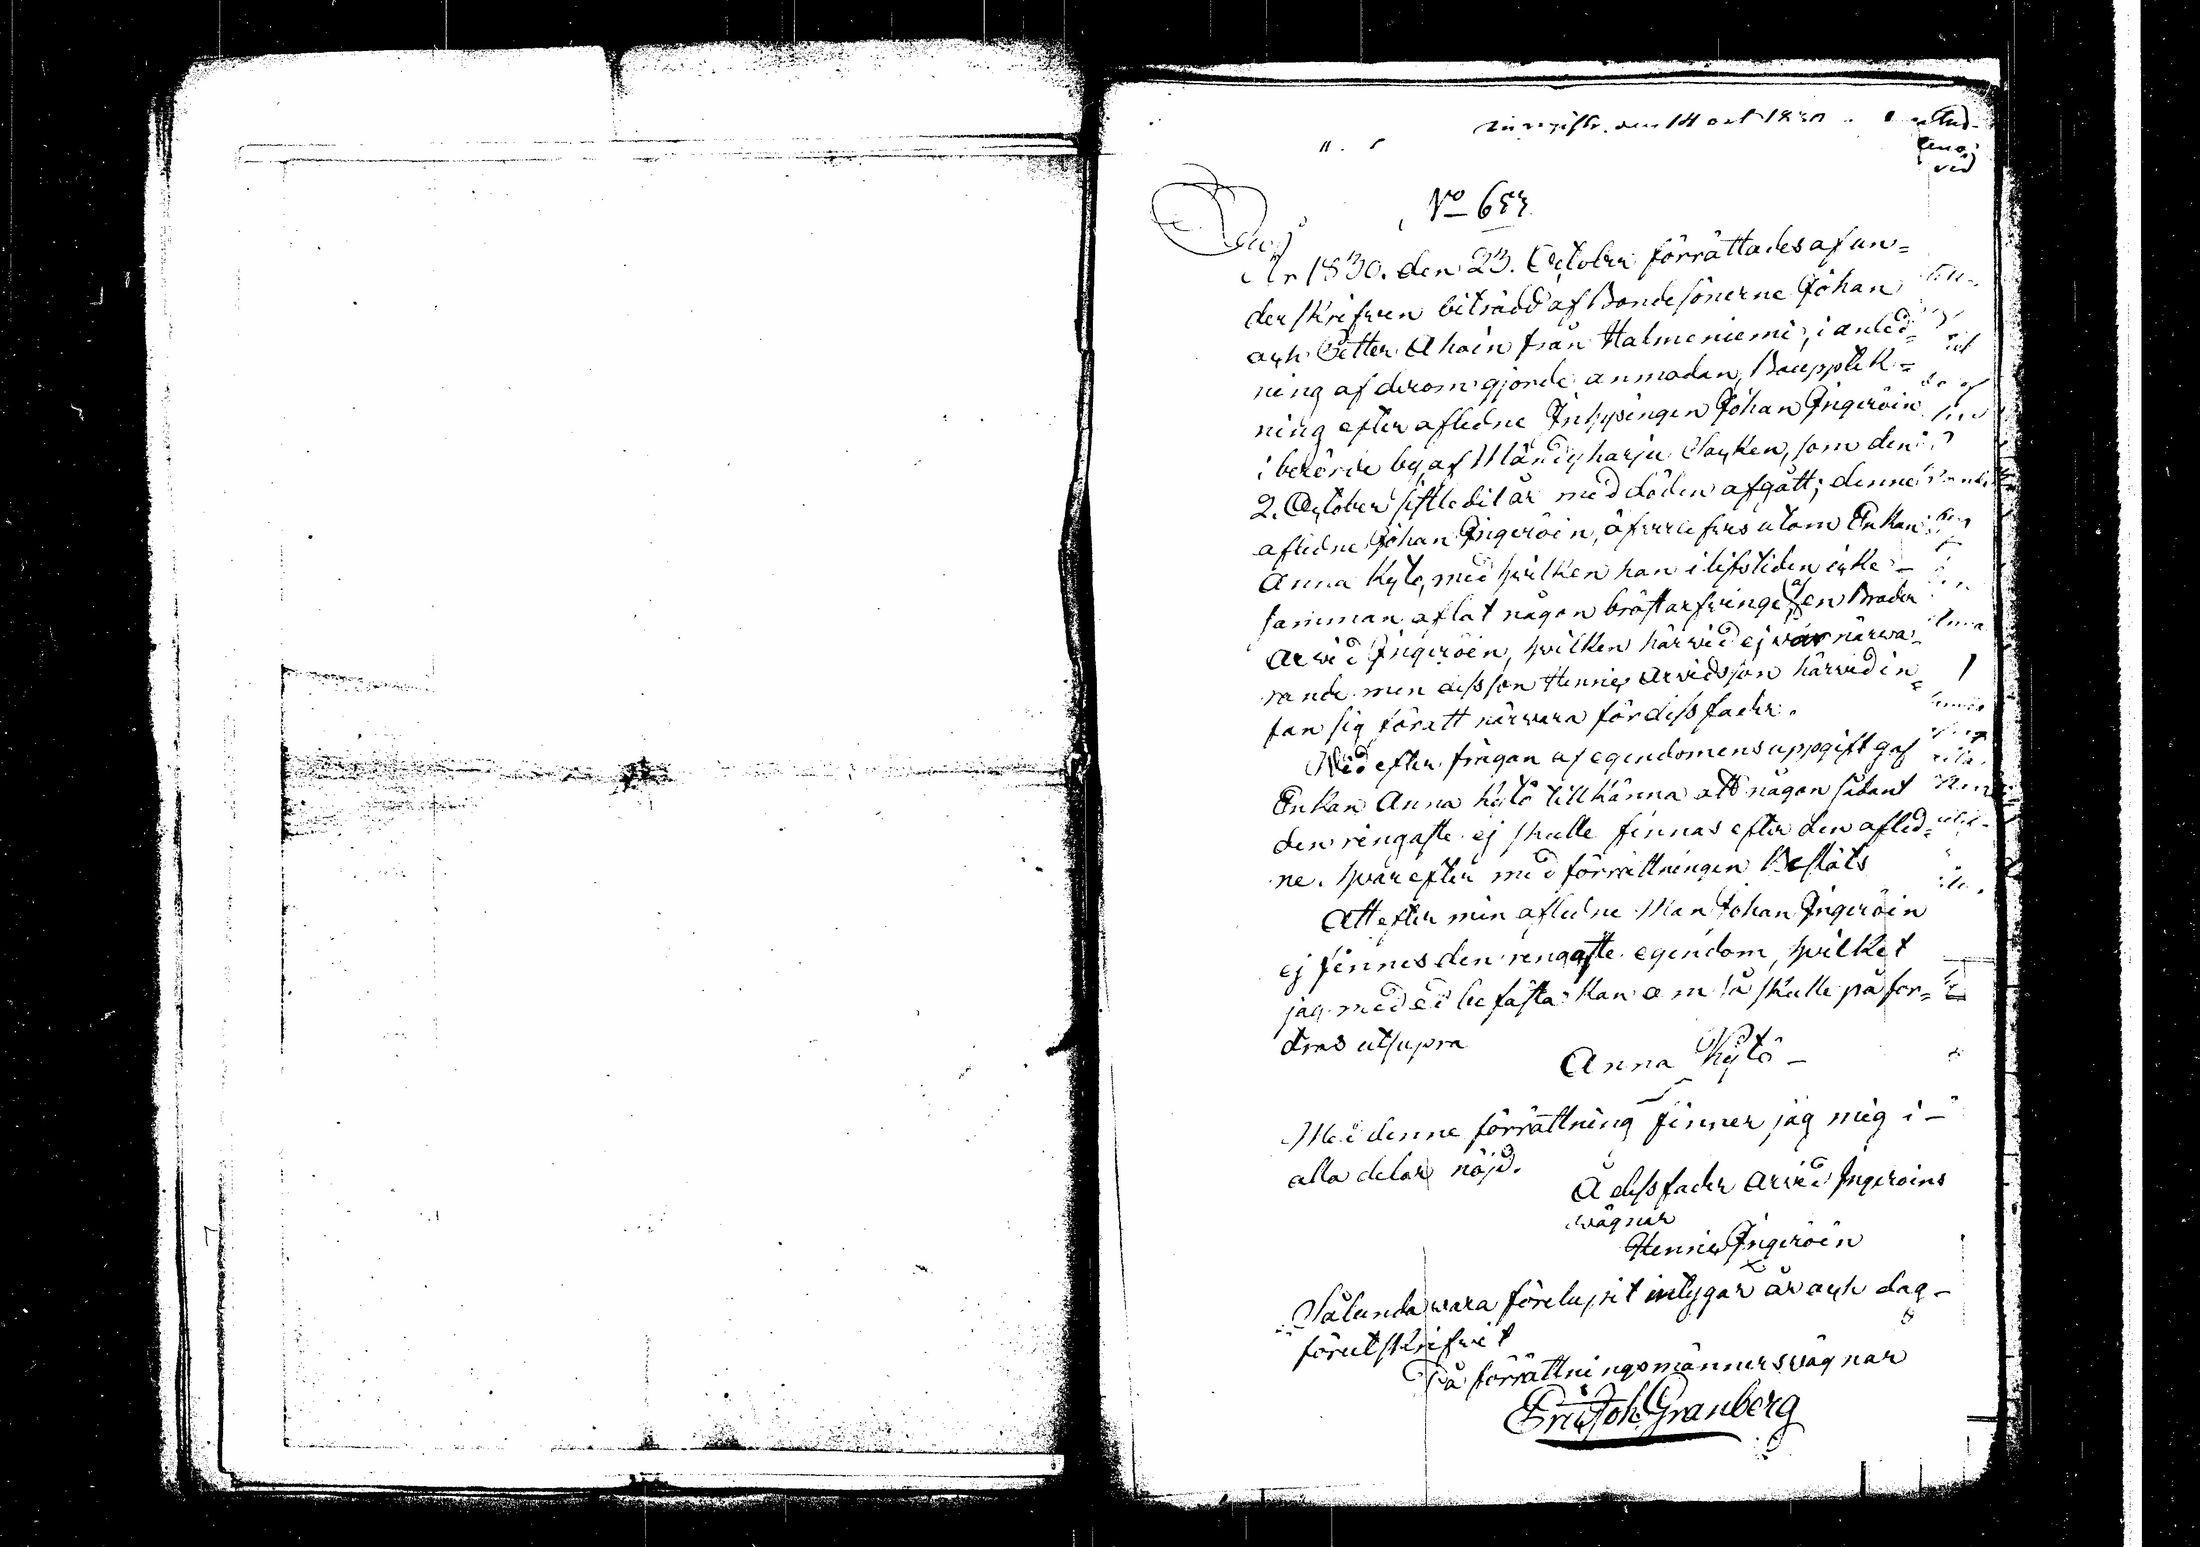 den 14 oct 1830
No 653
År 1830. den 23. October förrättades af un=
derskrifven biträdd af Bondesönerne Johan
och Petter Ahoin från Halmeniemi, i anled=
ning af derom gjorde anmodan, Boupptek=
ning efter aflidne Inhysingen Johan Ingeröin
i berörde by, af Mändyharju Socken, som den
2. October sistledit år med döden afgått; denne
aflidne Johan Ingeröin, öfverlefves utom Enkan
Anna Kytö, med hvilken han i lifstiden icke
samman aflat någon bröstarfvinge, af en Broder
Arvid Ingeröin, hvilken härvid ej var närva=
rande men dess son Hennes Arvidsson härvid in=
fan sig för att närvara för dess fader.
Vid efter frågan af egendomens uppgift gaf
Enkan Anna Kytö tillkänna att någon sådant
den ringaste ej skulle finnas efter den aflid=
ne. hvarefter med förrättningen Beslöts
Att efter min aflidne Man Johan Ingeröin
ej finnes den ringaste egendom, hvilket
jag med ed befästa kan om så skulle på for=
dras utsupra
Anna Kytö
Med denne förrättning finner jag mig i
alla delar nöjd.
Å dess fader Arvid Ingeröins
vägnar
Hennes Ingeröin
Sålunda vara förelupit intygar år och dag
förutskrifvit
På förrättningsmänners vägnar
Eric Joh Granberg